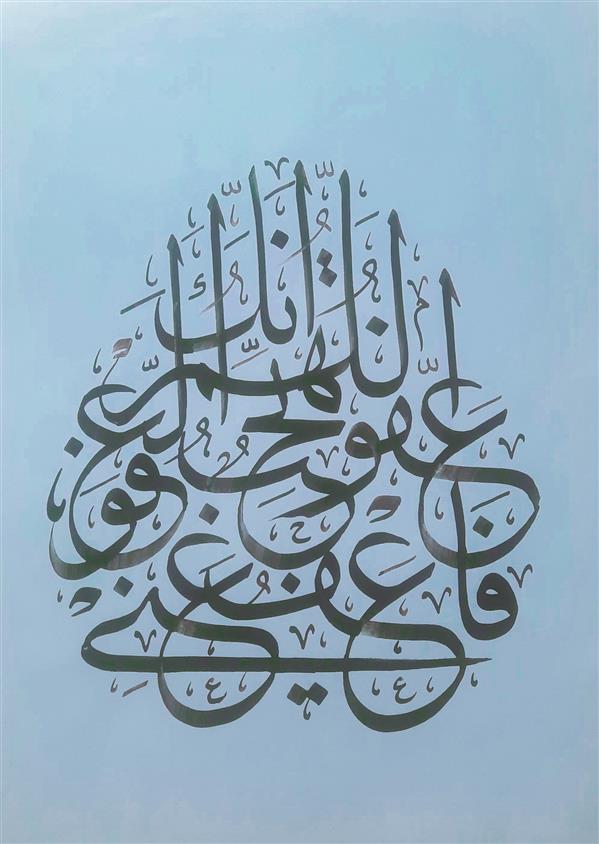 اللهم انك
عفو تحب العفو
فاعف عني